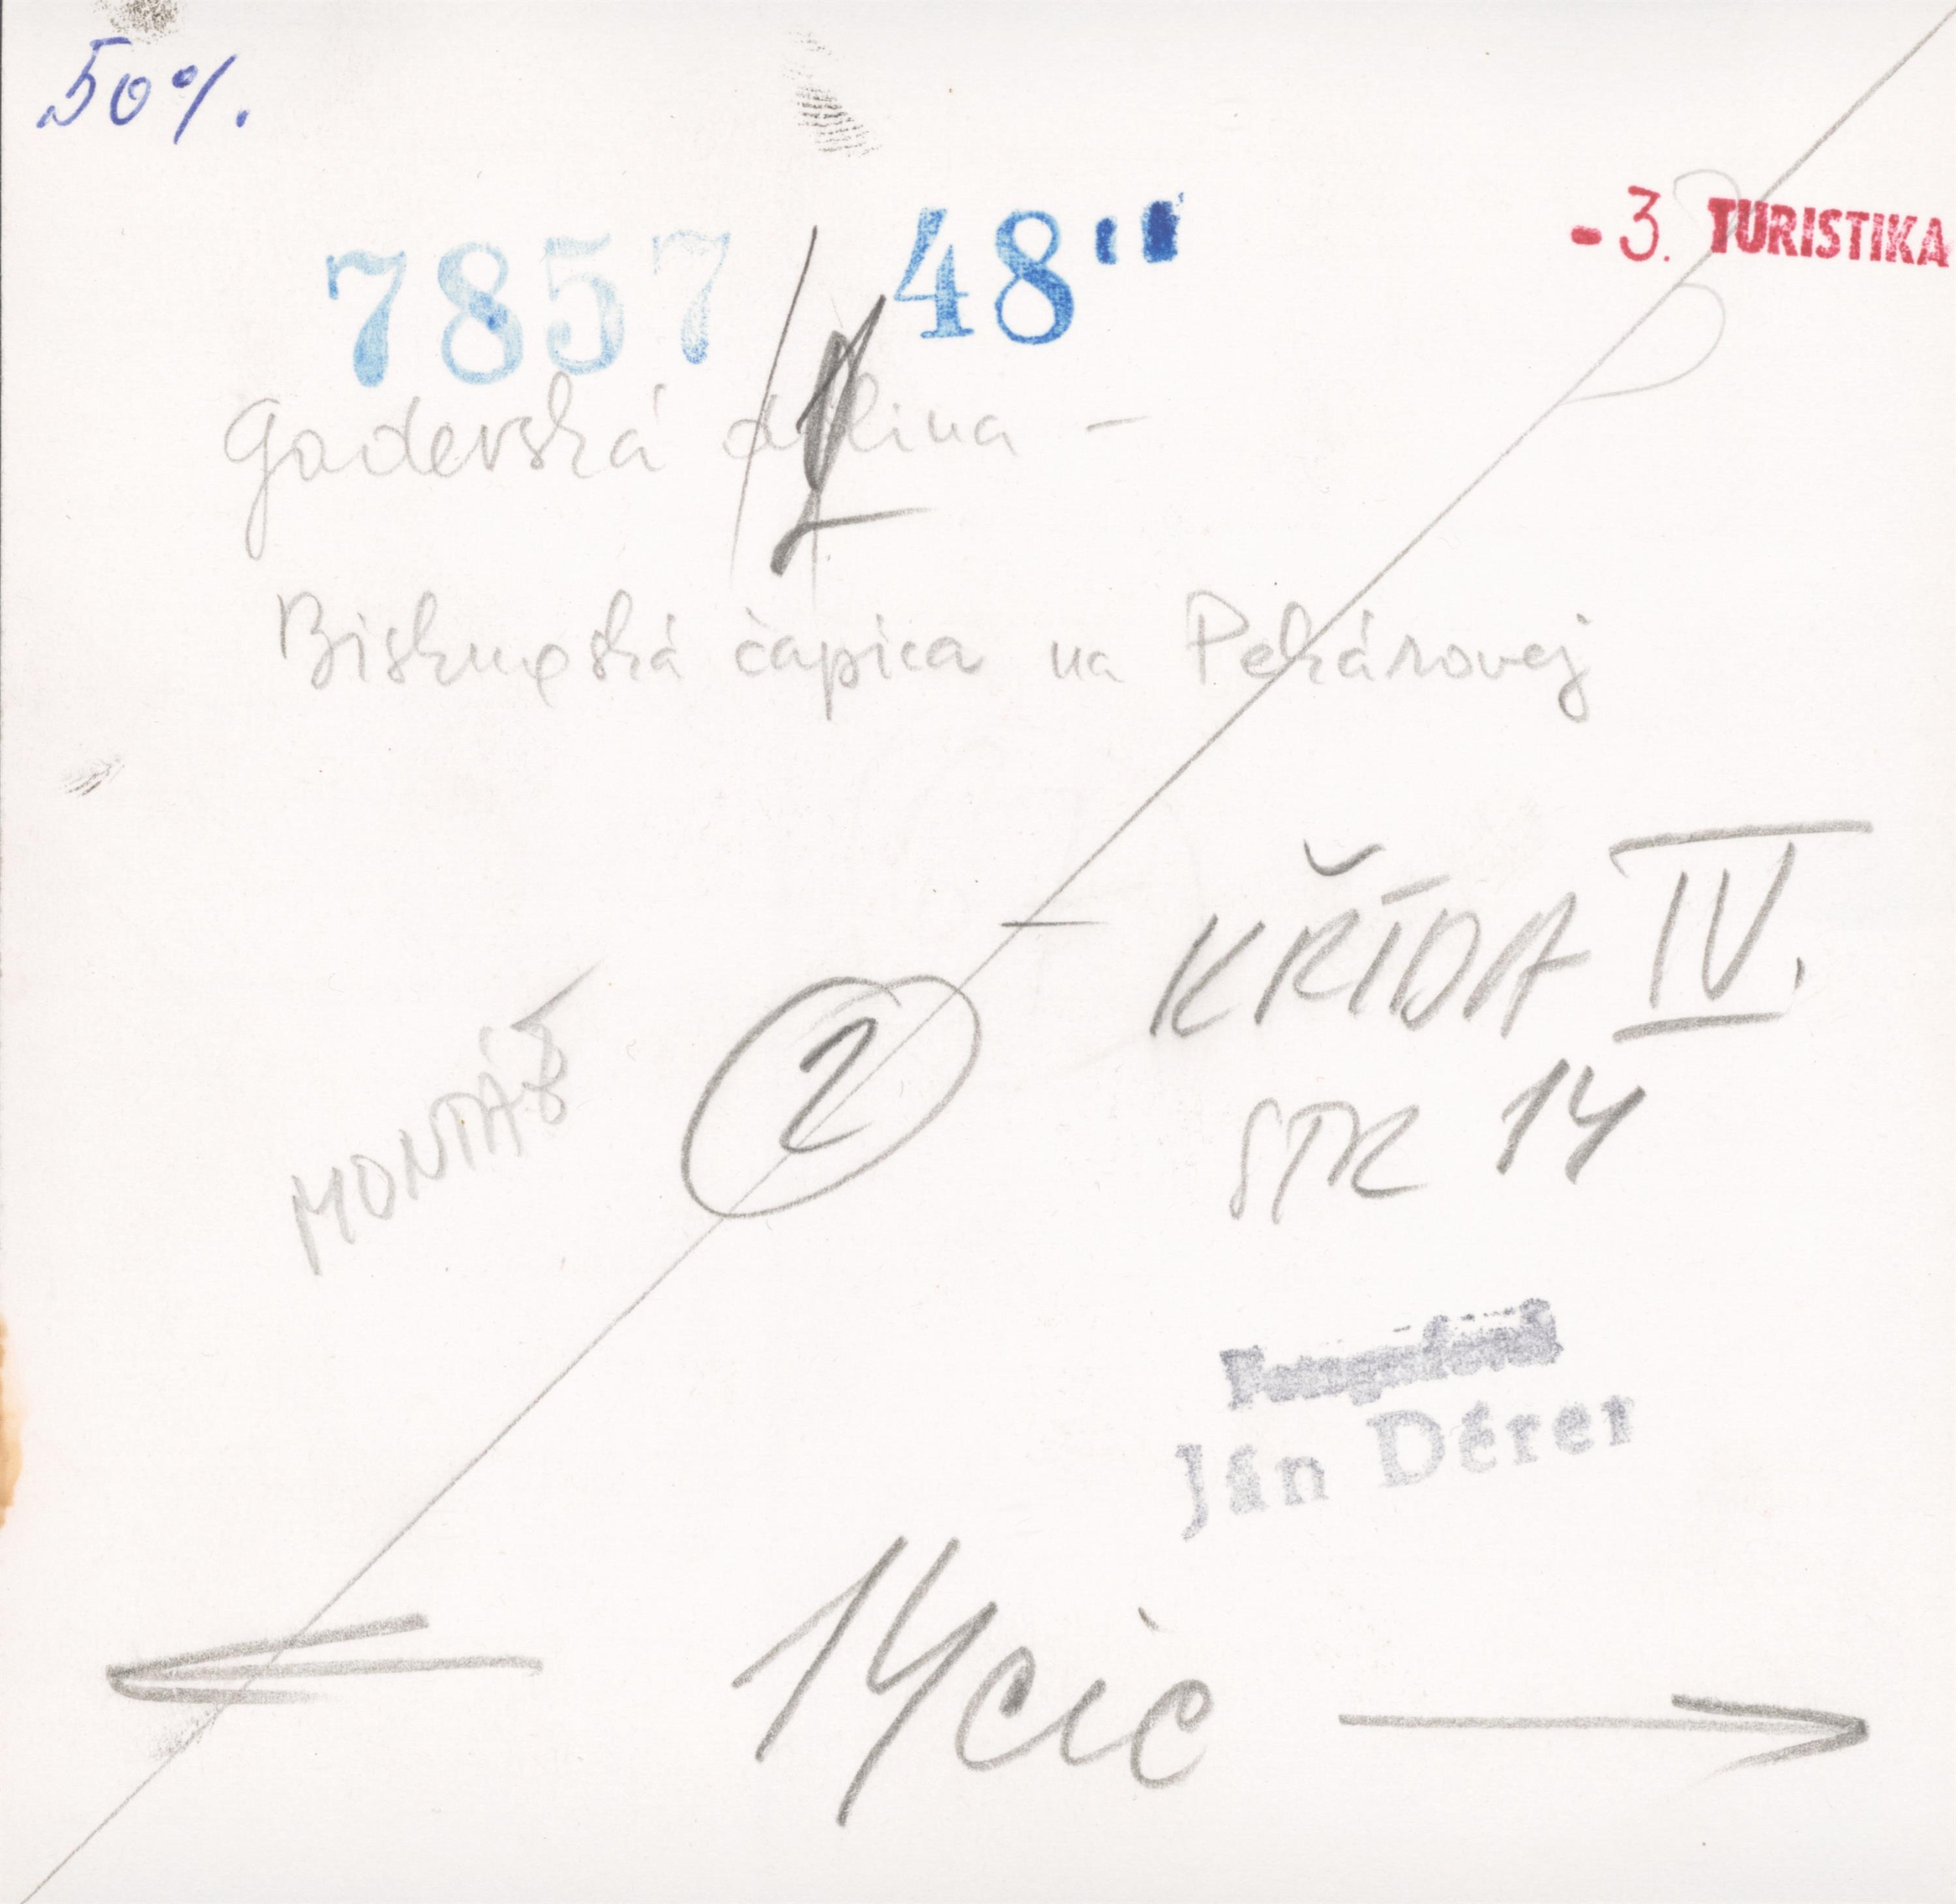 50%.
7857 48"
- 3. TURISTIKA
Gaderská dolina -
Biskupská čapica na Pekárovej
KŘÍDA IV.
MONTÁŽ
2
STR 14
Ján Dérer
14 cic